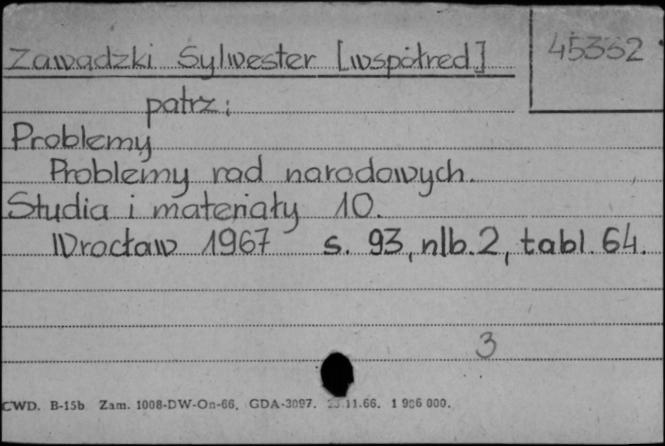 Zawadzki Sylwester [współred]
45352
patrz:
Problemy
Problemy rad narodowych.
Studia i materiały 10.
Wrocław 1967 s. 93, nlb. 2, tabl. 64.
3
CWD. B-15b Zam. 1008-DW-On-66. GDA-3097. 11.66. 1 986 000.